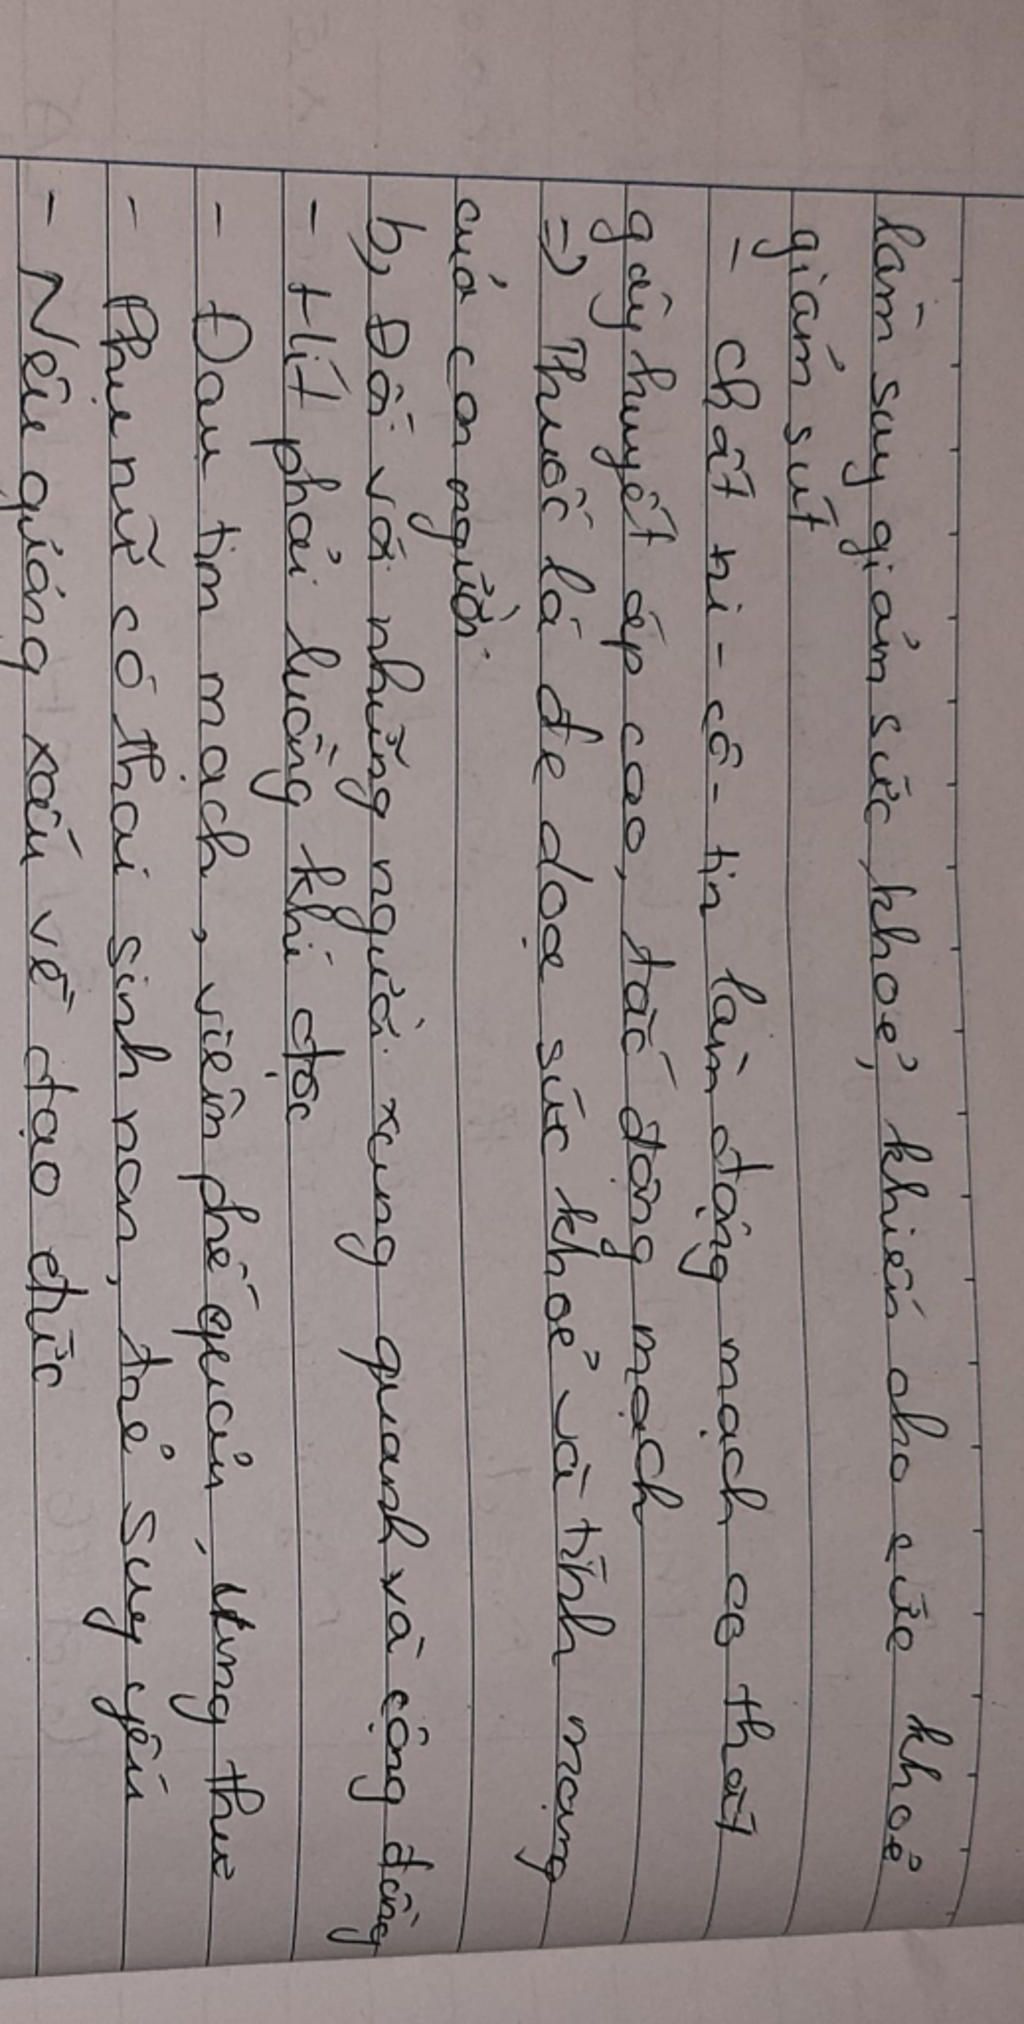 làm suy giảm sức khoẻ, khiến cho sức khoẻ
giảm sút
- chất ni-cô-tin làm động mạch co thắt
gây huyết áp cao, tắc động mạch
=> Thuốc lá đe doạ sức khoẻ và tính mạng
của con người
b, Đối với những người xung quanh và cộng đồng
- Hít phải luồng khí độc
- Đau tim mạch, viêm phế quản, ung thư
- Phụ nữ có thai sinh non, trẻ suy yếu
- Nêu gương xấu về đạo đức